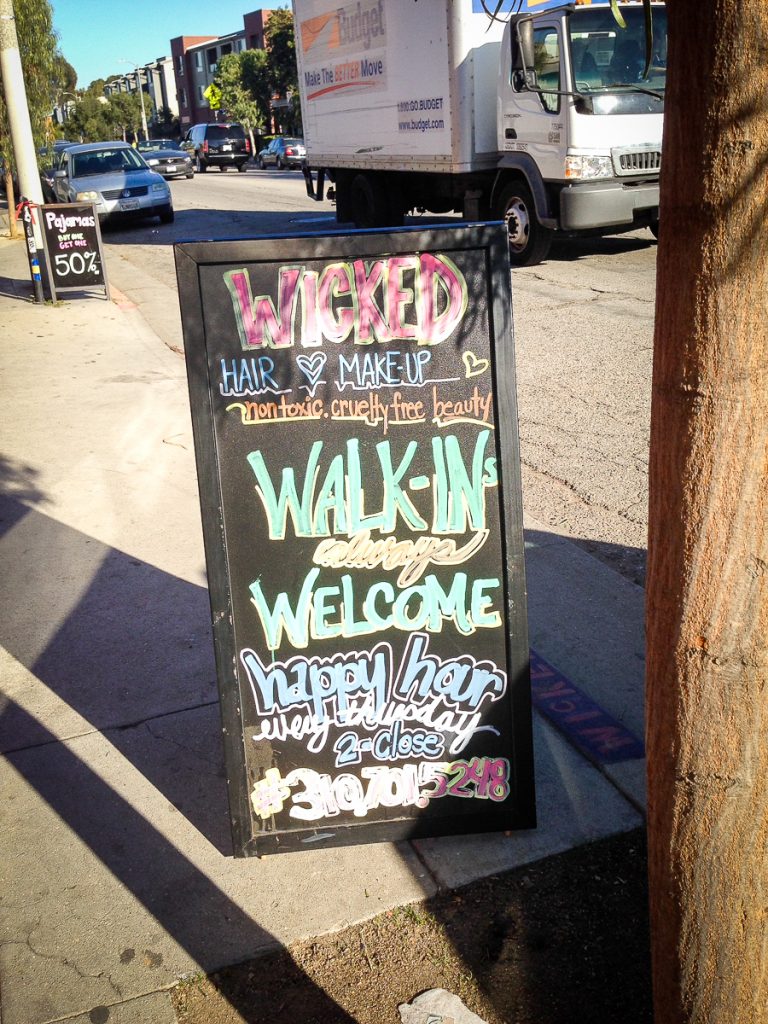 Budget
Make The BETTER Move
1.800.GO.BUDGET
www.budget.com
Pajamas
BUY ONE
GET ONE
50%
WICKED
HAIR MAKE-UP
nontoxic. crueltyfree beauty
WALK-INs
always
WELCOME
happy hour
every thursday
2-close
#310.701.5248
WICKED